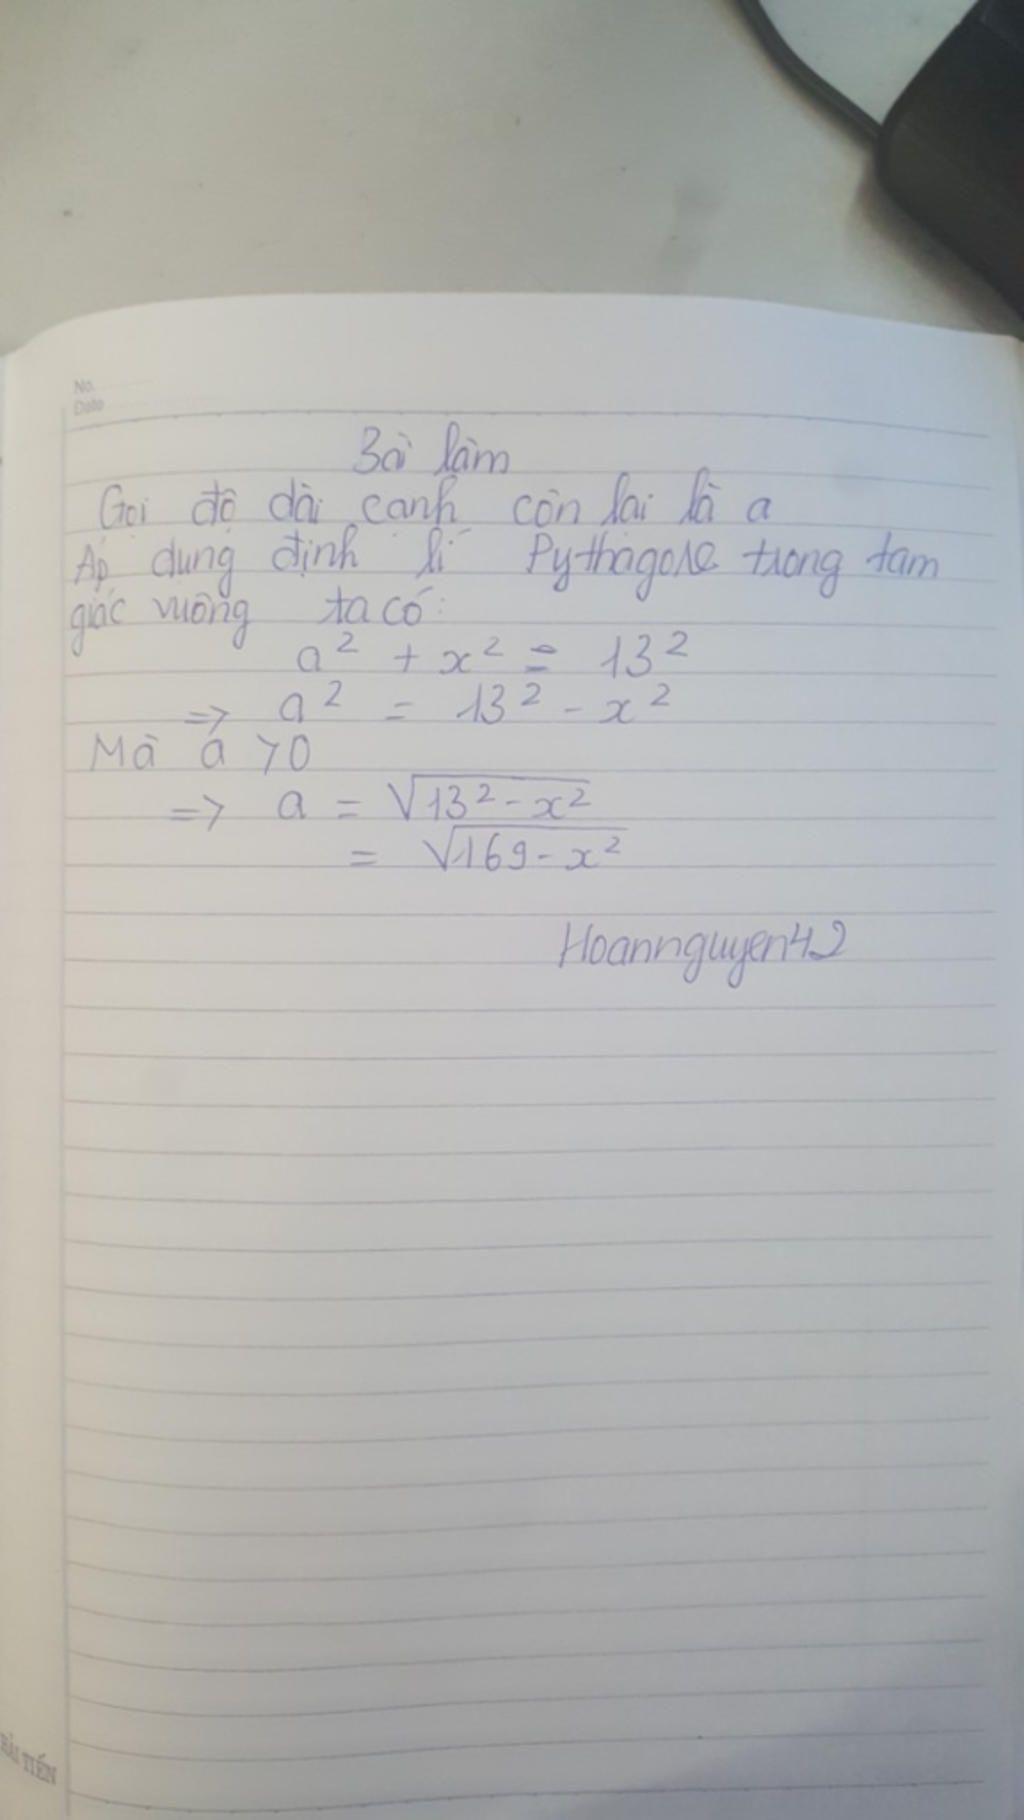 No.
Date
Bài làm
Gọi độ dài cạnh còn lại là a
Áp dụng định lí Pythagore trong tam
giác vuông ta có:
a² + x² = 13²
=> a² = 13² - x²
Mà a > 0
=> a = √(13² - x²)
= √(169 - x²)
Hoannguyen42
HẢI TIẾN